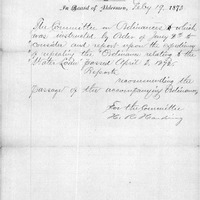 In Board of Aldermen, Feby 19. 1873
The Committee on Ordinances to which
was instructed by Order of Jany
consider and report upon the expediency
of repealing the "Ordinance relating to the
Water Loan" passed April 2.
Reports
recommending the
passage of the accompanying Ordinance
For the Committee
H. R. Harding